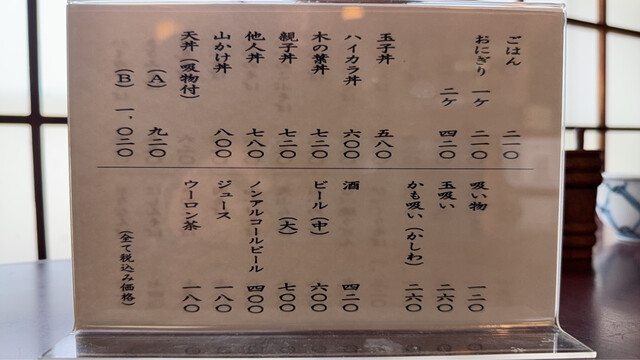 ごはん 二一〇
おにぎり 一ケ 二一〇
二ケ 四二〇
玉子丼 五八〇
ハイカラ丼 六〇〇
木の葉丼 七二〇
親子丼 七二〇
他人丼 七八〇
山かけ丼 八〇〇
天丼(吸物付)
(A) 九二〇
(B) 一、〇二〇
吸い物 一二〇
玉吸い 二六〇
かも吸い(かしわ) 二六〇
酒 四二〇
ビール(中) 六〇〇
(大) 七〇〇
ノンアルコールビール 四〇〇
ジュース 一八〇
ウーロン茶 一八〇
(全て税込み価格)